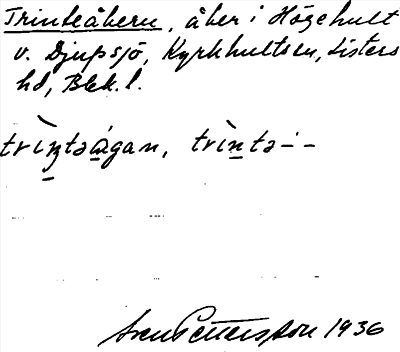 Trinteåkern, åker i Högehult
v. Djupsjö, Kyrkhultsn, Listers
hd, Blek. l.
trìntəågan, trìntə–́–
Sven Pettersson 1936